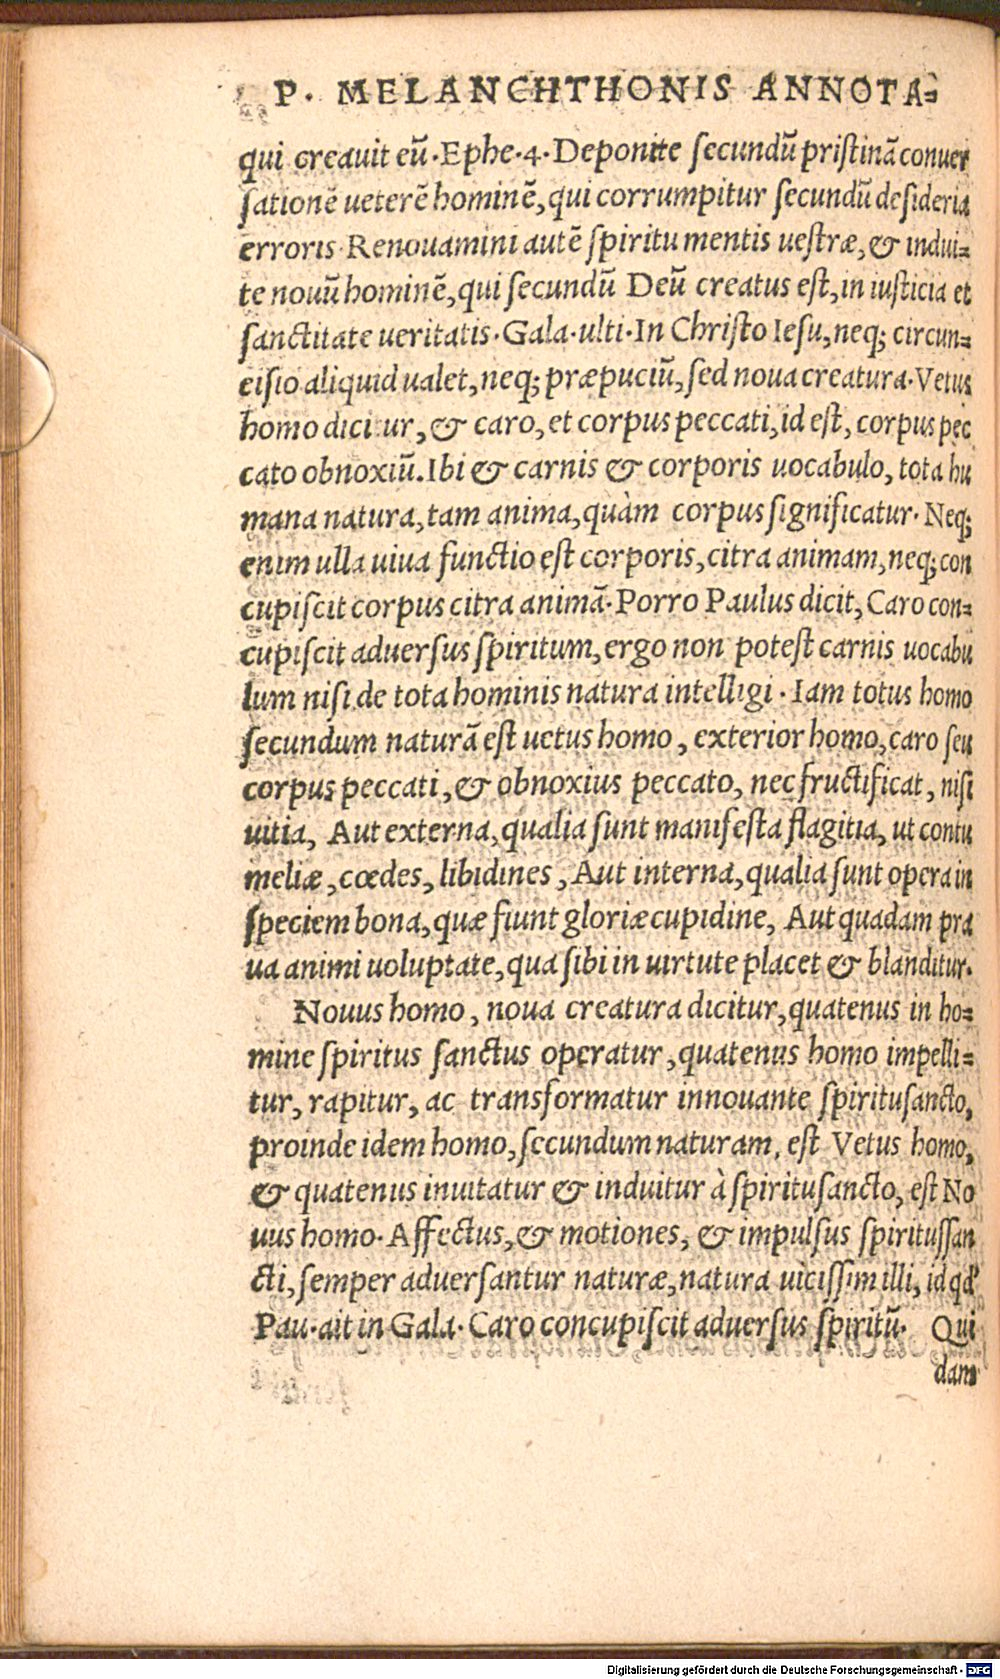 P. MELANCHTHONIS ANNOTA⸗
qui creauit eũ. Ephe. 4. Deponite ſecundũ priſtinã conuer
ſationẽ ueterẽ hominẽ, qui corrumpitur ſecundũ deſideria
erroris. Renouamini autẽ ſpiritu mentis ueſtræ, & indui⸗
te nouũ hominẽ, qui ſecundũ Deũ creatus eſt, in iuſticia et
ſanctitate ueritatis. Gala. ulti. In Chriſto Ieſu, neq; circun⸗
ciſio aliquid ualet, neq; præpuciũ, ſed noua creatura. Vetus
homo dicitur, & caro, et corpus peccati, id eſt, corpus pec
cato obnoxiũ. Ibi & carnis & corporis uocabulo, tota hu
mana natura, tam anima, quàm corpus ſignificatur. Neq;
enim ulla uiua functio eſt corporis, citra animam, neq; con
cupiſcit corpus citra animã. Porro Paulus dicit, Caro con⸗
cupiſcit aduerſus ſpiritum, ergo non poteſt carnis uocabu
lum niſi de tota hominis natura intelligi. Iam totus homo
ſecundum naturã eſt uetus homo, exterior homo, caro ſeu
corpus peccati, & obnoxius peccato, nec fructificat, niſi
uitia, Aut externa, qualia ſunt manifeſta flagitia, ut contu
meliæ, cœdes, libidines, Aut interna, qualia ſunt opera in
ſpeciem bona, quæ fiunt gloriæ cupidine, Aut quadam pra
ua animi uoluptate, qua ſibi in uirtute placet & blanditur.
Nouus homo, noua creatura dicitur, quatenus in ho⸗
mine ſpiritus ſanctus operatur, quatenus homo impelli⸗
tur, rapitur, ac transformatur innouante ſpirituſancto,
proinde idem homo, ſecundum naturam, eſt Vetus homo,
& quatenus inuitatur & induitur à ſpirituſancto, eſt No
uus homo. Affectus, & motiones, & impulſus ſpirituſſan
cti, ſemper aduerſantur naturæ, natura uiciſſim illi, id qđ
Pau. ait in Gala. Caro concupiſcit aduerſus ſpiritũ. Qui
dam
Digitalisierung gefördert durch die Deutsche Forschungsgemeinschaft - DFG